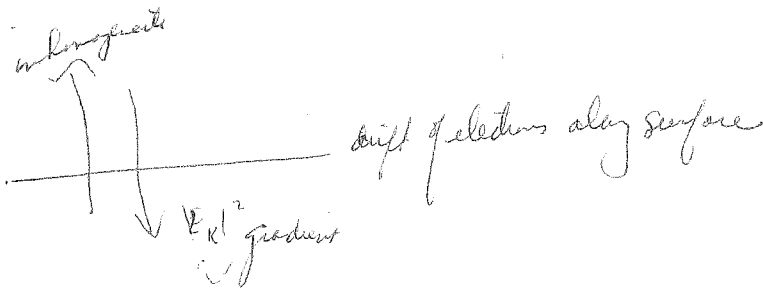 inhomogeneity
drift of electrons along surface
|E_K|² gradient